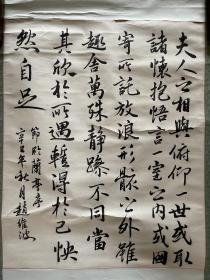 夫人之相與俯仰一世或取
諸懷抱悟言一室之内或因
寄所託放浪形骸之外雖
趣舍萬殊静躁不同當
其欣於所遇暫得於己怏
然自足
節臨蘭亭序
辛丑年秋月趙維波